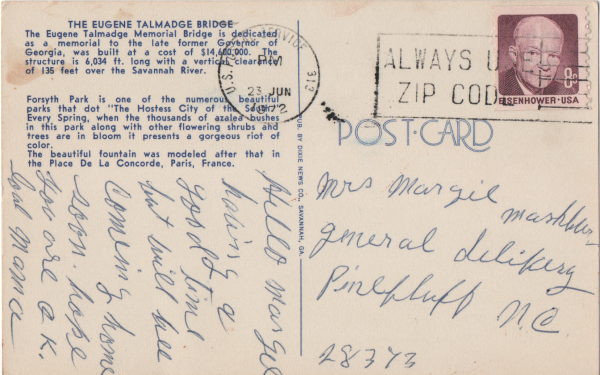 THE EUGENE TALMADGE BRIDGE
The Eugene Talmadge Memorial Bridge is dedicated
as a memorial to the late former Governor of
Georgia, was built at a cost of $14,600,000. The
structure is 6,034 ft. long with a vertical clearance
of 135 feet over the Savannah River.
Forsyth Park is one of the numerous beautiful
parks that dot "The Hostess City of the South."
Every Spring, when the thousands of azalea bushes
in this park along with other flowering shrubs and
trees are in bloom it presents a gorgeous riot of
color.
The beautiful fountain was modeled after that in
the Place De La Concorde, Paris, France.
PUB. BY DIXIE NEWS CO., SAVANNAH, GA.
U.S. SERVICE 313
PM
23 JUN
1972
ALWAYS USE
ZIP CODE
8¢
EISENHOWER·USA
POST CARD
Hello Margie
having a
good time
but will bee
coming home
soon. hope
you are O.K.
Mama
Mrs Margie
general delivery
Pinebluff
N.C.
28373